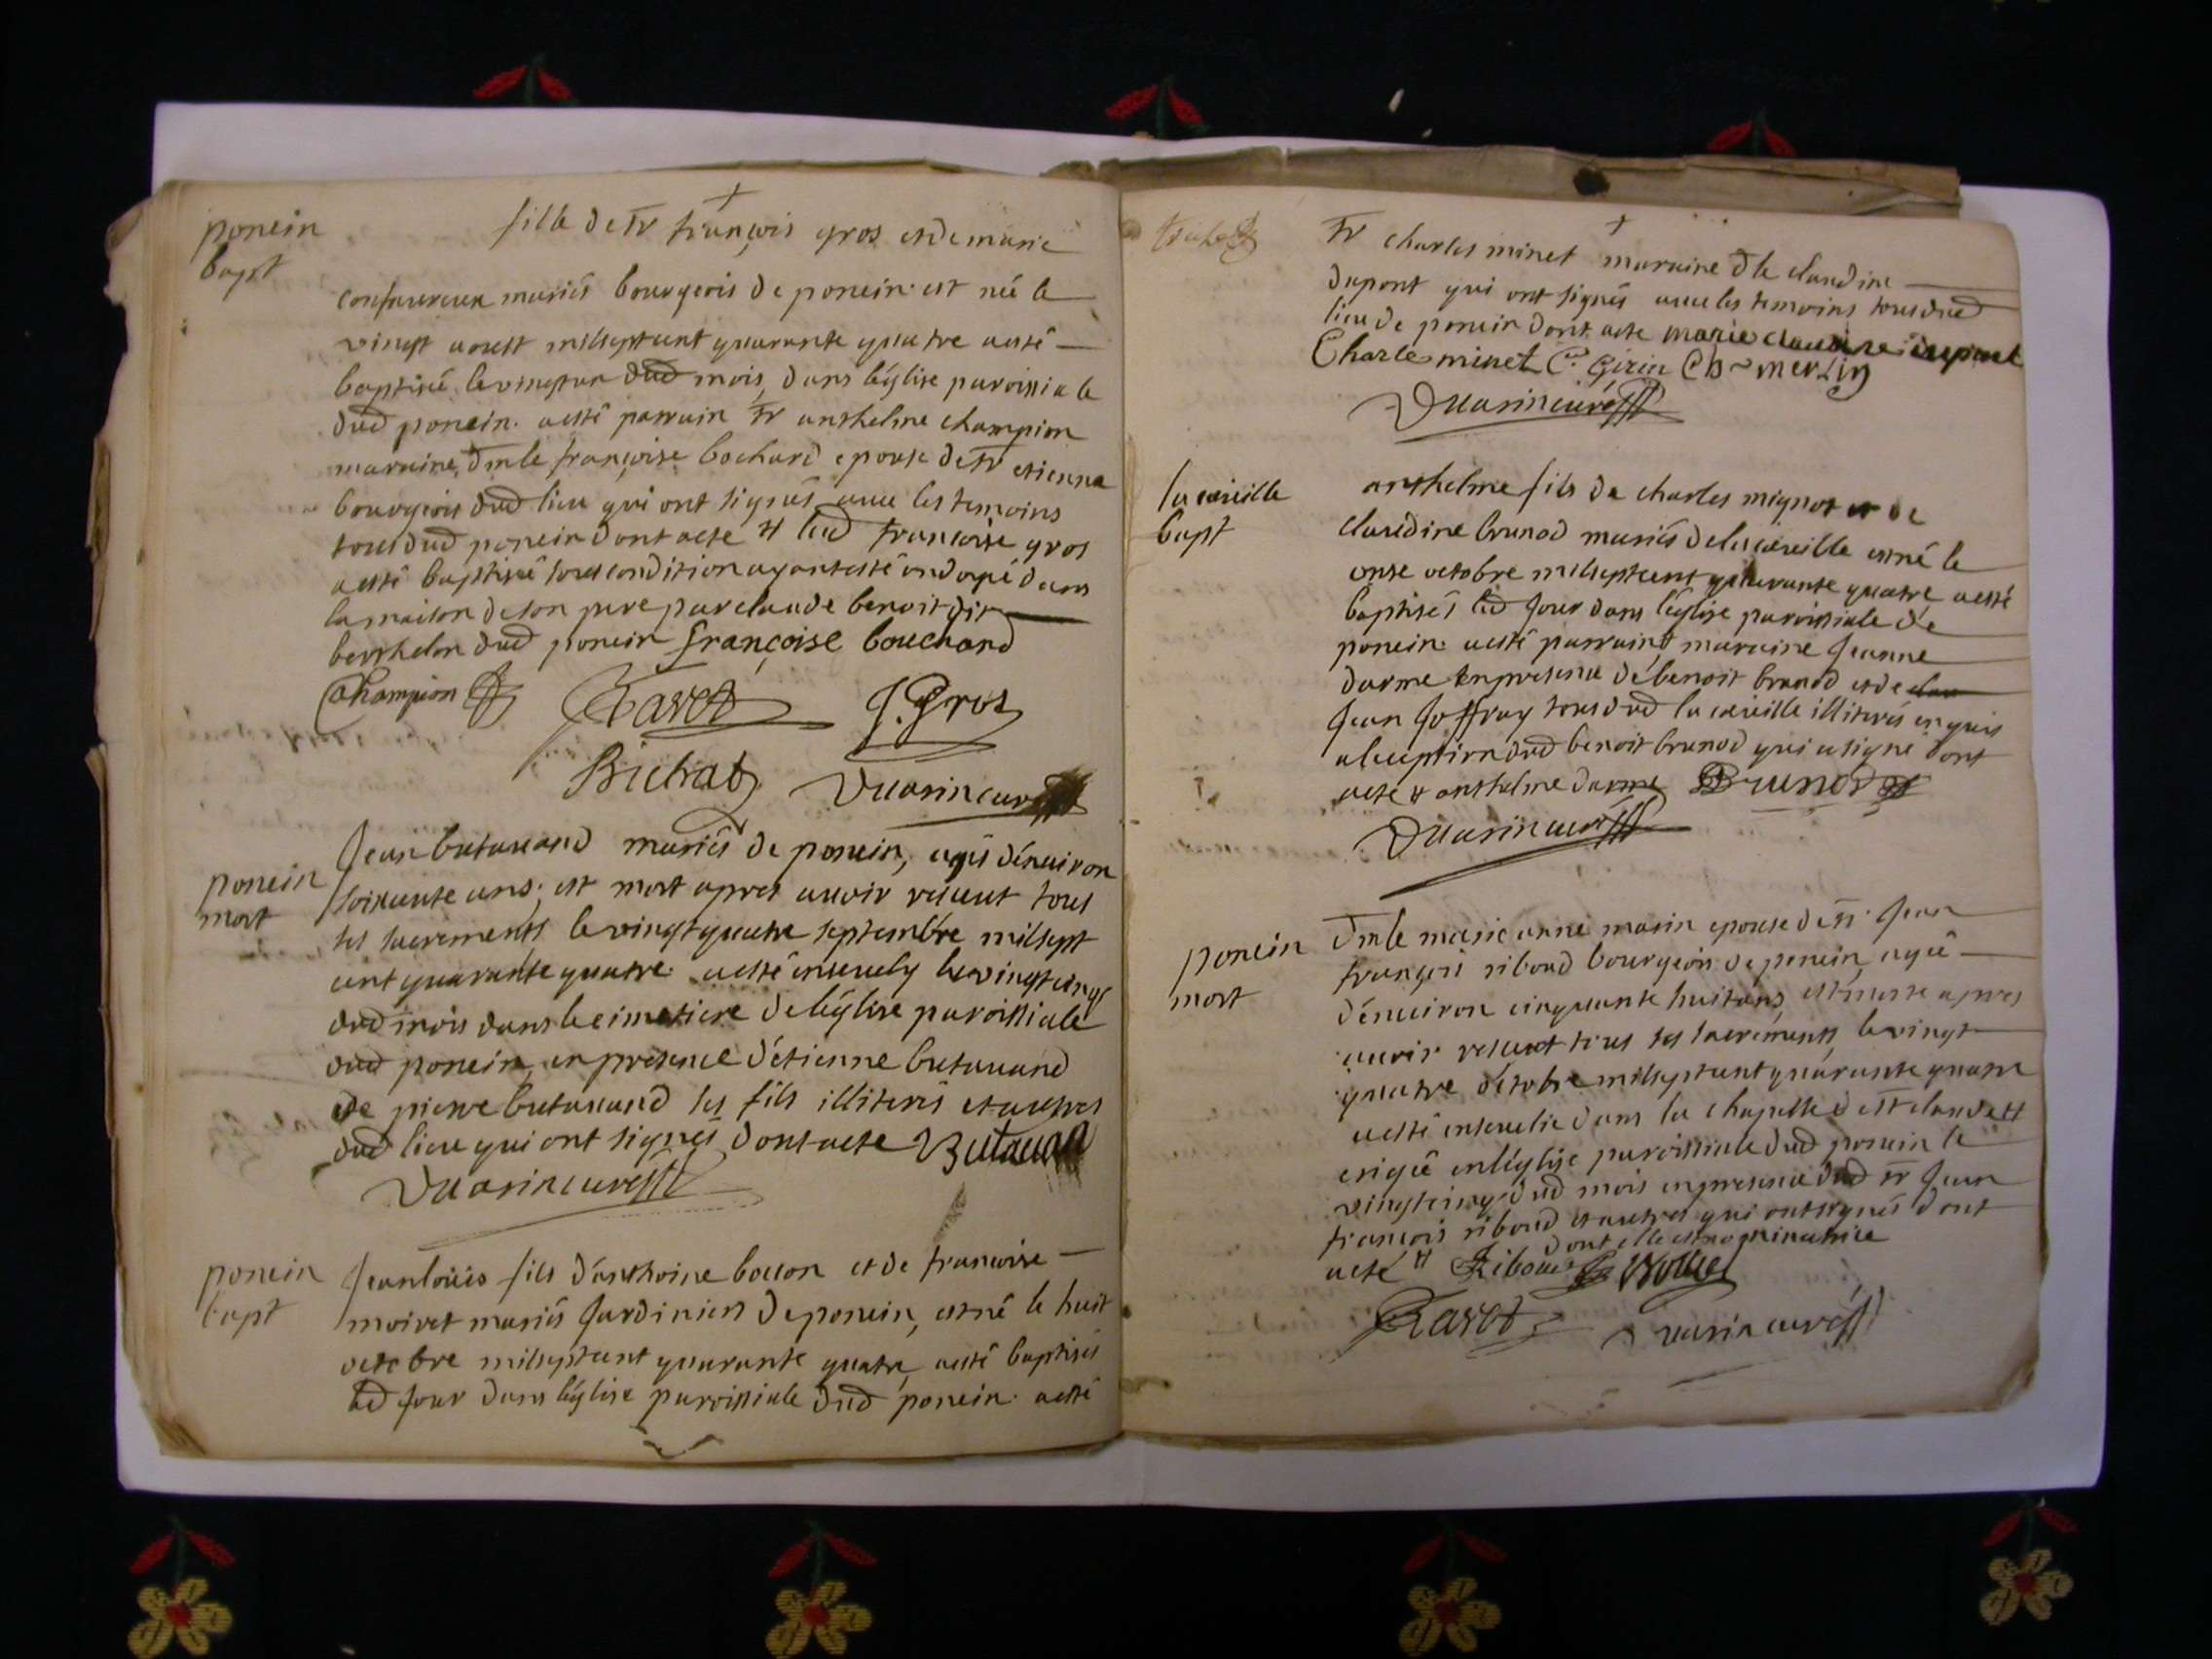 ponein
bapt
fille de sr françois gros et de marie
mariés bourgeois de ponein est née le
vingt aoust mil sept cent quarante quatre a esté
baptisée le vingt un dud mois, dans léglise paroissiale
dud ponein. a esté parrain sr anthelme champion
marraine, dmlle françoise bochard epouse de sr etienne
bourgeois dud lieu qui ont signés avec les temoins
tous dud ponein dont acte # lad francoise gros
a esté baptisée sous condition ayant esté ondoyé dans
la maison de son pere par claude benoit dit
berthelon dud ponein françoise bouchard
Champion Favet J. Gros
Bichat Duarin curé
ponein
mort
Jean butavand mariés de ponein, agés dénviron
soixante ans, est mort apres avoir receut tous
ses sacrements le vingt quatre septembre mil sept
cent quarante quatre a esté ensevely le vingt cinq
dud mois dans le cimetiere de léglise paroissiale
dud ponein, en presence détienne butavand
et de pierre butavand ses fils illiterés et autres
dud lieu qui ont signés dont acte Butavan
Duarin curé
ponein
bapt
Jean loüis fils d'anthoine bollon et de francoise
moiret mariés Jardiniers de ponein, est né le huit
octobre mil sept cent quarante quatre a esté baptisés
led jour dans léglise paroissiale dud ponein. a esté
sr charles minet maraine dlle claudine
dupont qui ont signés avec les temoins tous dud
lieu de ponein dont acte marie claudine dupont
Charle minet Cl. Girin Ch merlin
Duarin curé
la coreille
bapt
anthelme fils de charles mignot et de
claudine brunod mariés de la coreille est né le
onze octobre mil sept cent quarante quatre a esté
baptisés led jour dans léglise paroissiale de
ponein a esté parrain # maraine Jeanne
darme en presence de benoit brunod et de
Jean Joffray tous dud la coreille illiterés enquis
a l'exeption dud benoit brunod qui a signé dont
acte # anthelme darme Brunod
Duarin curé
ponein
mort
dmlle marie anne marin epouse de sr Jean
françois riboud bourgeois de ponein, agée
dénviron cinquante huit ans, est morte apres
avoir receut tous ses sacrements, le vingt
quatre octobre mil sept cent quarante quatre
a esté ensevelie dans la chapelle de st claude #
erigée en léglise paroissiale dud ponein le
vingt cinq dud mois en presence dud sr Jean
françois riboud et autres qui ont signés dont
acte # dont elle est nominatrice
Riboud
Favet Duarin curé